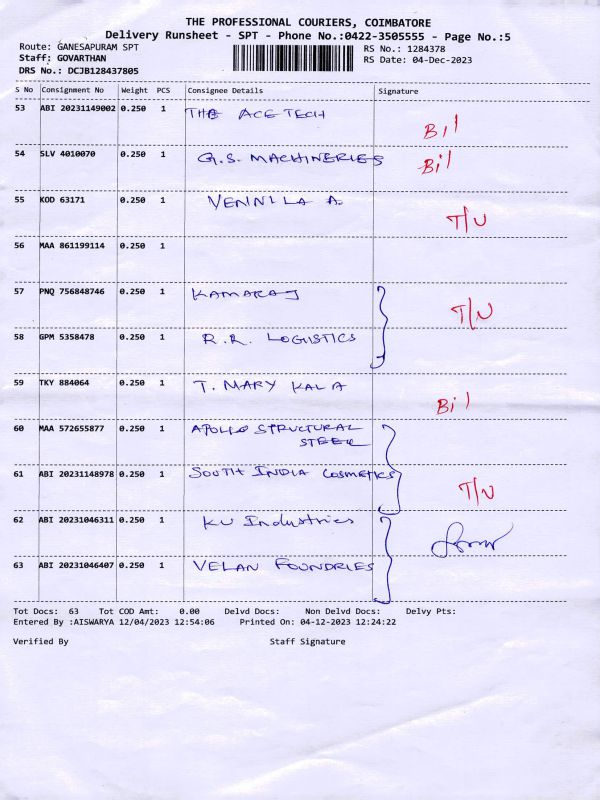 THE PROFESSIONAL COURIERS, COIMBATORE
Delivery Runsheet - SPT - Phone No.:0422-3505555 - Page No.:5
Route: GANESAPURAM SPT RS No.: 1284378
Staff: GOVARTHAN RS Date: 04-Dec-2023
DRS No.: DCJB128437805
S No Consignment No Weight PCS Consignee Details Signature
53 ABI 20231149002 0.250 1 THE ACE TECH Bil
54 SLV 4010070 0.250 1 G.S. MACHINERIES Bil
55 KOD 63171 0.250 1 VENNILA A. T/N
56 MAA 861199114 0.250 1
57 PNQ 756848746 0.250 1 KAMARAJ T/N
58 GPM 5358478 0.250 1 R.R. LOGISTICS
59 TKY 884064 0.250 1 T. MARY KALA Bil
60 MAA 572655877 0.250 1 APOLLO STRUCTURAL
STEEL
61 ABI 20231148978 0.250 1 SOUTH INDIA COSMETICS T/N
62 ABI 20231046311 0.250 1 KU Industries
63 ABI 20231046407 0.250 1 VELAN FOUNDRIES
Tot Docs: 63 Tot COD Amt: 0.00 Delvd Docs: Non Delvd Docs: Delvy Pts:
Entered By :AISWARYA 12/04/2023 12:54:06 Printed On: 04-12-2023 12:24:22
Verified By Staff Signature